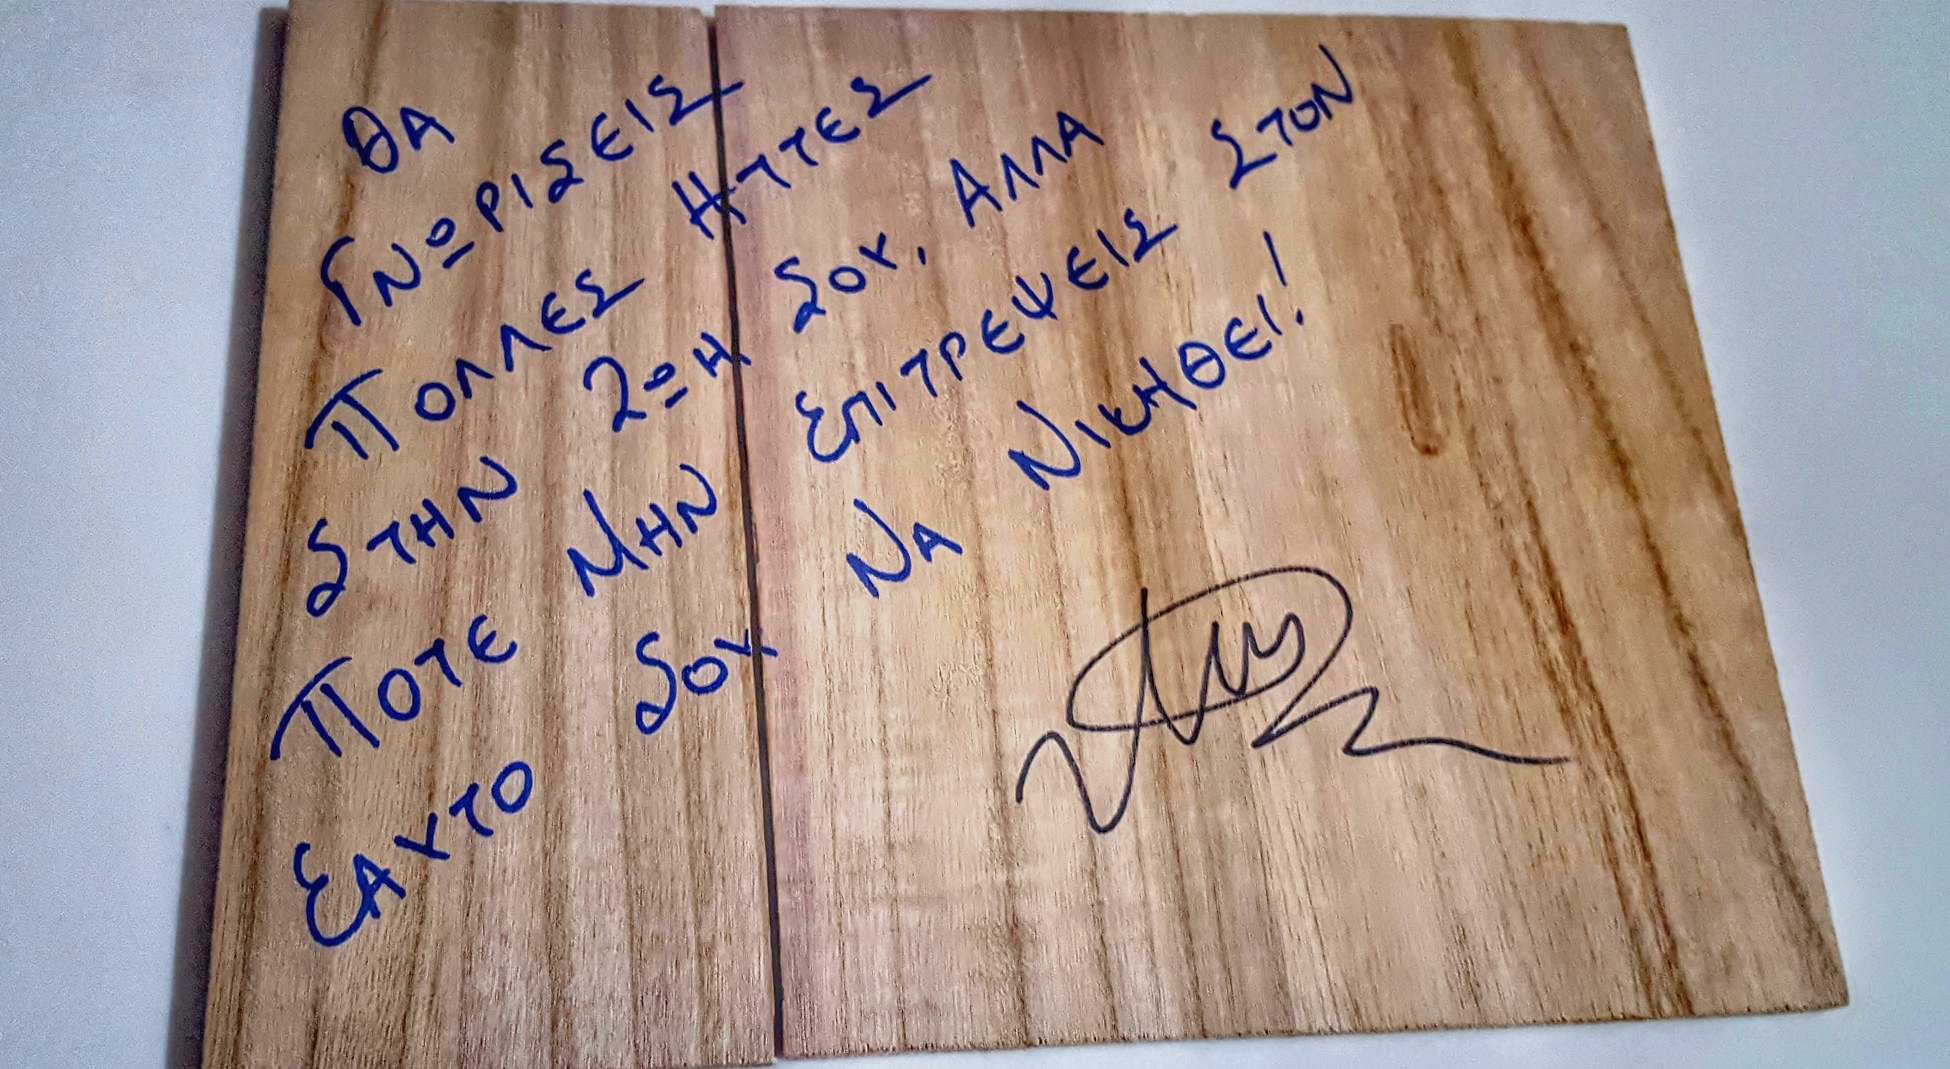 ΘΑ
ΓΝΩΡΙΣΕΙΣ
ΠΟΛΛΕΣ ΗΤΤΕΣ
ΣΤΗΝ ΖΩΗ ΣΟΥ, ΑΛΛΑ
ΠΟΤΕ ΜΗΝ ΕΠΙΤΡΕΨΕΙΣ ΣΤΟΝ
ΕΑΥΤΟ ΣΟΥ ΝΑ ΝΙΚΗΘΕΙ!